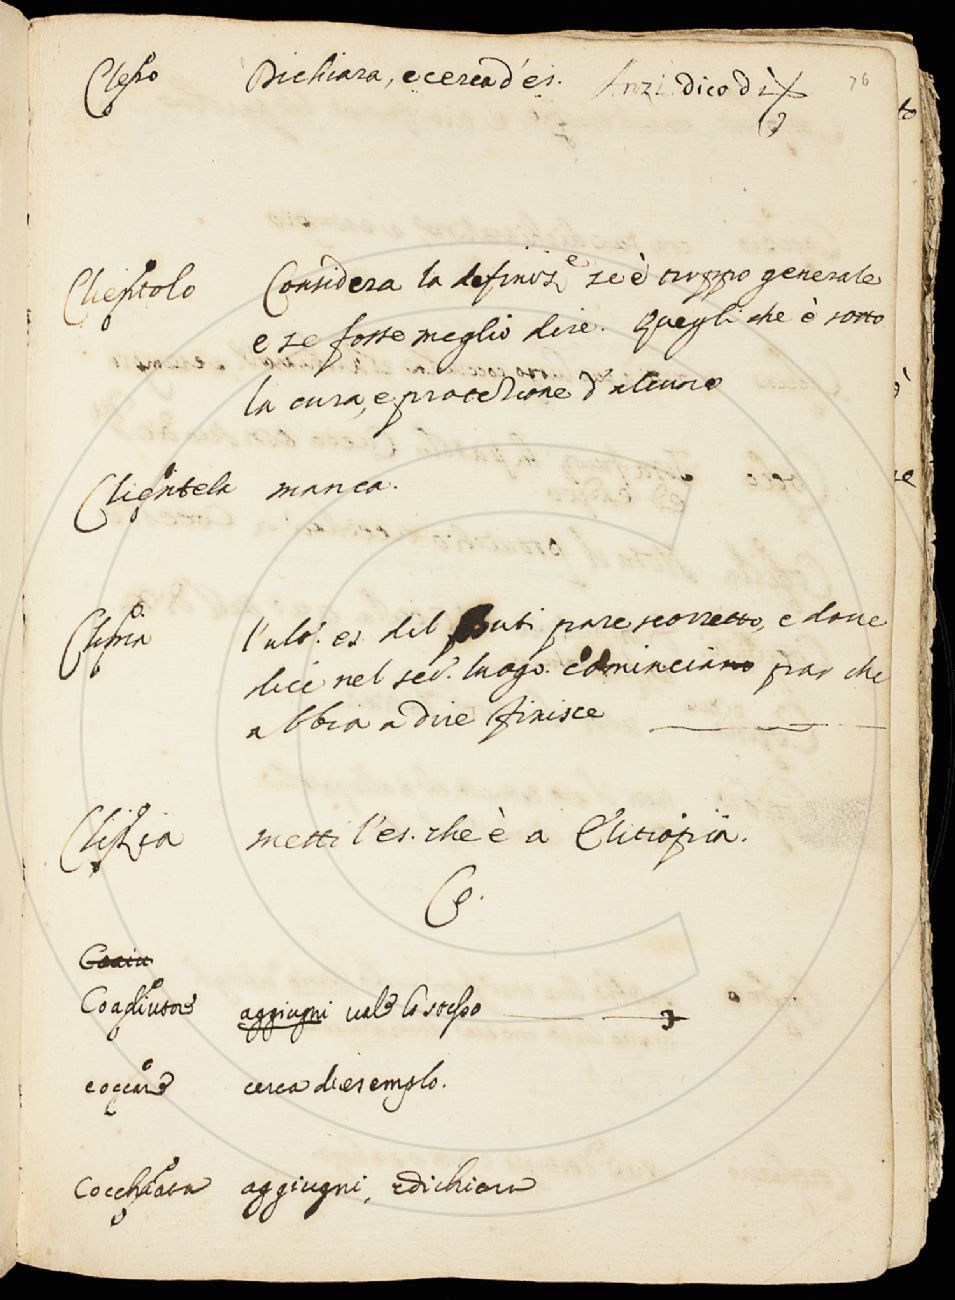 76
Clesso Dichiara, e cerca d'es. Anzi dico di
Clientolo Considera la definiz.e se è troppo generale
e se fosse meglio dire. Quegli che è sotto
la cura, e protezione d'alcuno
Clientela manca.
l'ult. es. del pare scorretto, e doue
dice nel sec. luogo. cominciano par che
abbia a dire finisce
Clizia metti l'es. che è a Elitropia.
Co.
Coagliutore aggiugni vale lo stesso
coccare cerca di esemplo.
Cocchiata aggiugni, e dichiara